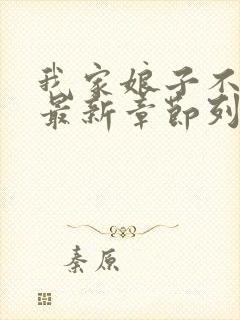 我家娘子不
最新章节列
秦原